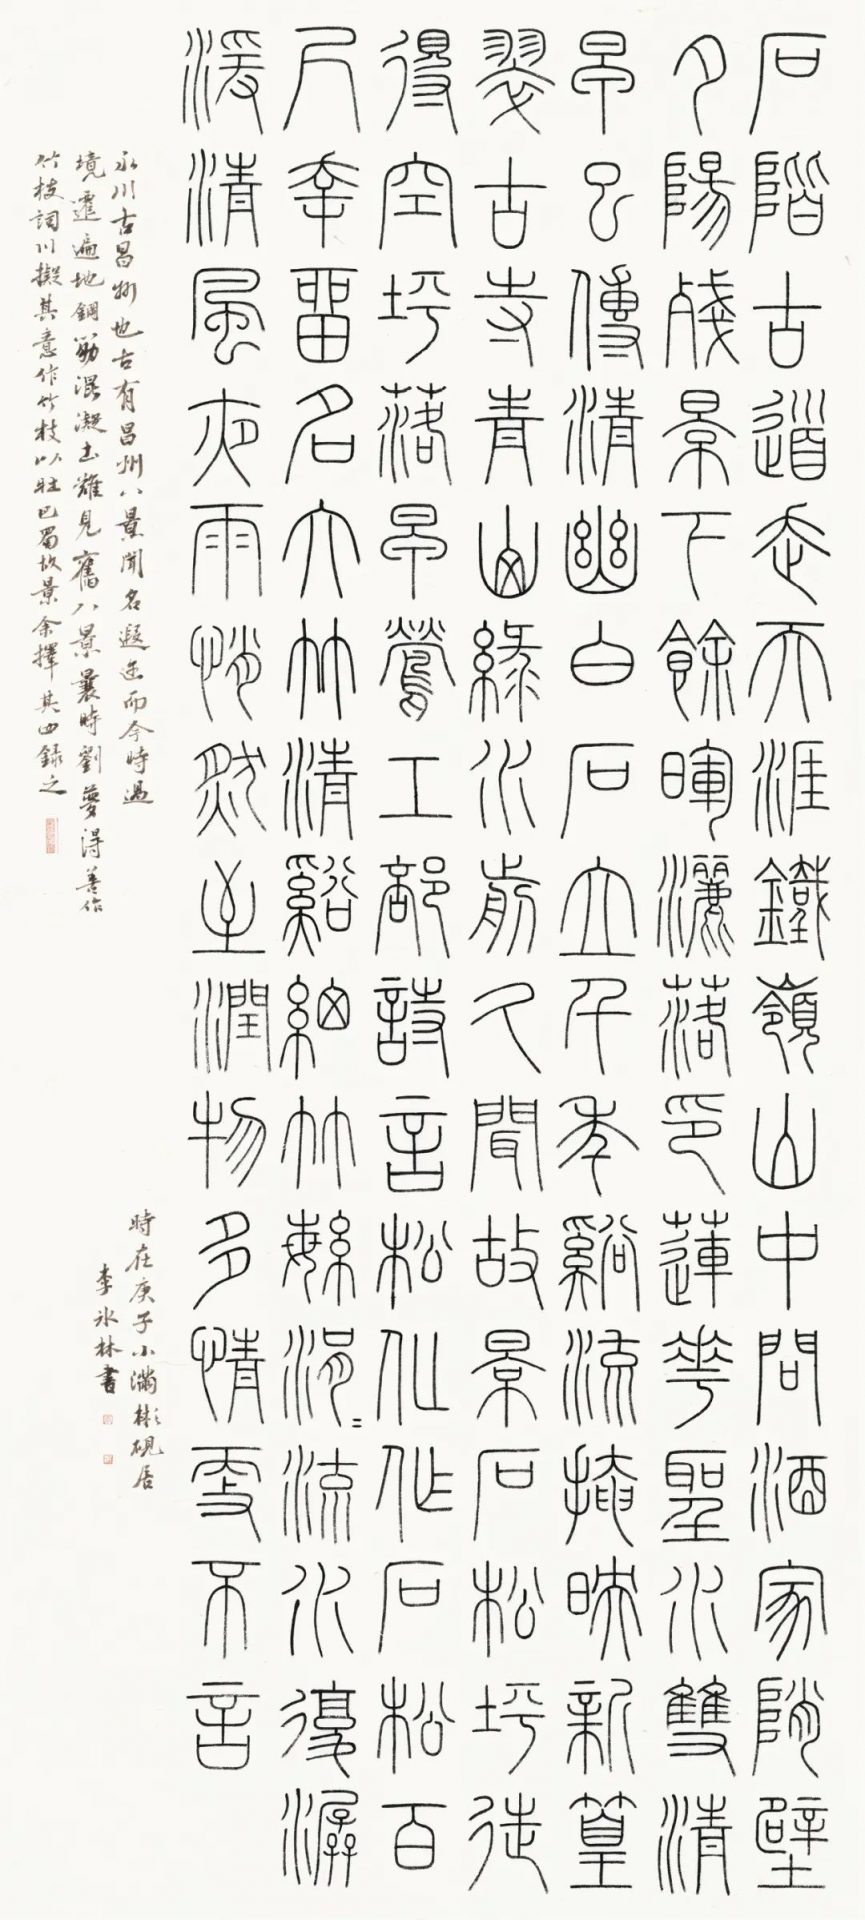 石階古道走天涯鐵嶺山中問酒家陗壁
夕陽殘景下餘暉灑落印蓮華聖水雙清
早已傳清幽白石立千年谿流掩映新篁
翠古寺青山綠水前久聞故景石松坪徒
得空坪落早鶯工部詩言松化作石松百
尺幸留名六竹清谿細竹緐涓〻流水復潺
湲清風夜雨悄然至潤物多情雪不言
永川古昌州也古有昌州八景聞名遐迩而今時過
境遷遍地鋼筋混凝土難見舊八景曩時劉夢得善作
竹枝詞川擬其意作竹枝以註巴蜀故景余擇其四錄之
時在庚子小滿彬硯居
李冰林書